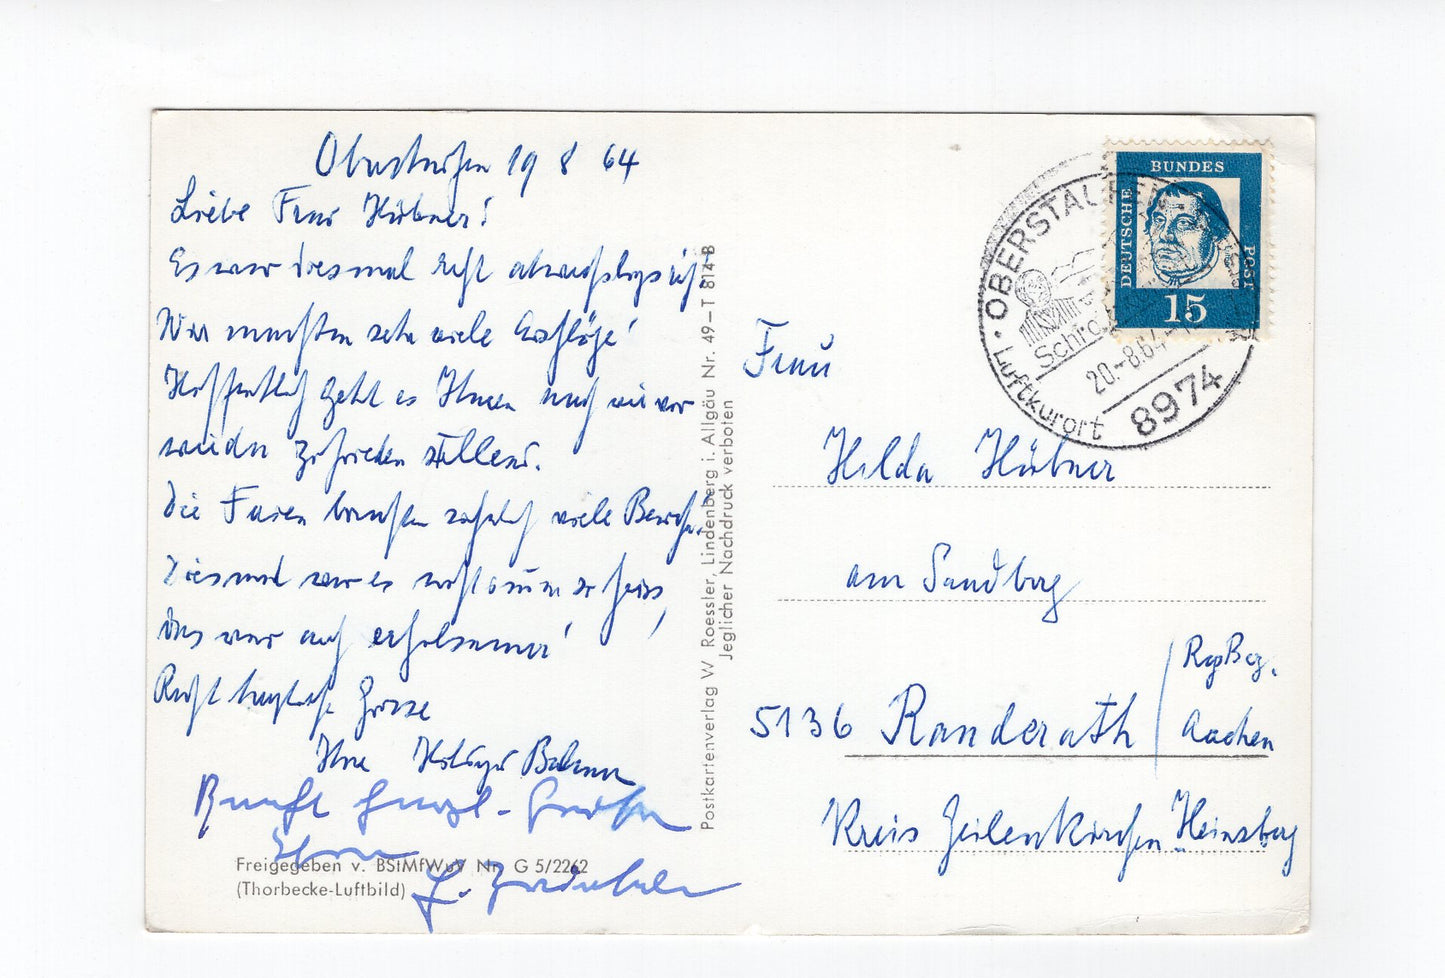 Oberstaufen 19 8 64
Liebe Frau Hübner!
Es war diesmal recht abwechslungsreich.
Wir machten sehr viele Ausflüge!
Hoffentlich geht es Ihnen nach wie vor
zufrieden stellend.
Die Ferien brachten viele Besuche.
Diesmal war es nicht so heiss,
das war auch erholsamer!
Recht herzliche Grüsse
Ihre
Recht herzl. Grüße
Ihre
Freigegeben v. BStMfWuV Nr. G 5/2262
(Thorbecke-Luftbild)
Postkartenverlag W. Roessler, Lindenberg i. Allgäu Nr. 49—T 814 B
Jeglicher Nachdruck verboten
DEUTSCHE BUNDES POST
15
OBERSTAUFEN
Luftkurort
20.-8.64
8974
Frau
Hilda Hübner
am Sandberg
5136 Randerath / RegBez.
Aachen
Kreis Geilenkirchen Heinsberg